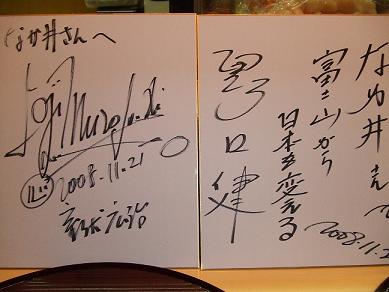 なか井さんへ
Koji Murofushi
2008.11.21
室伏広治
なか井さんへ
富士山から
日本を変える
2008.11.2
野口健